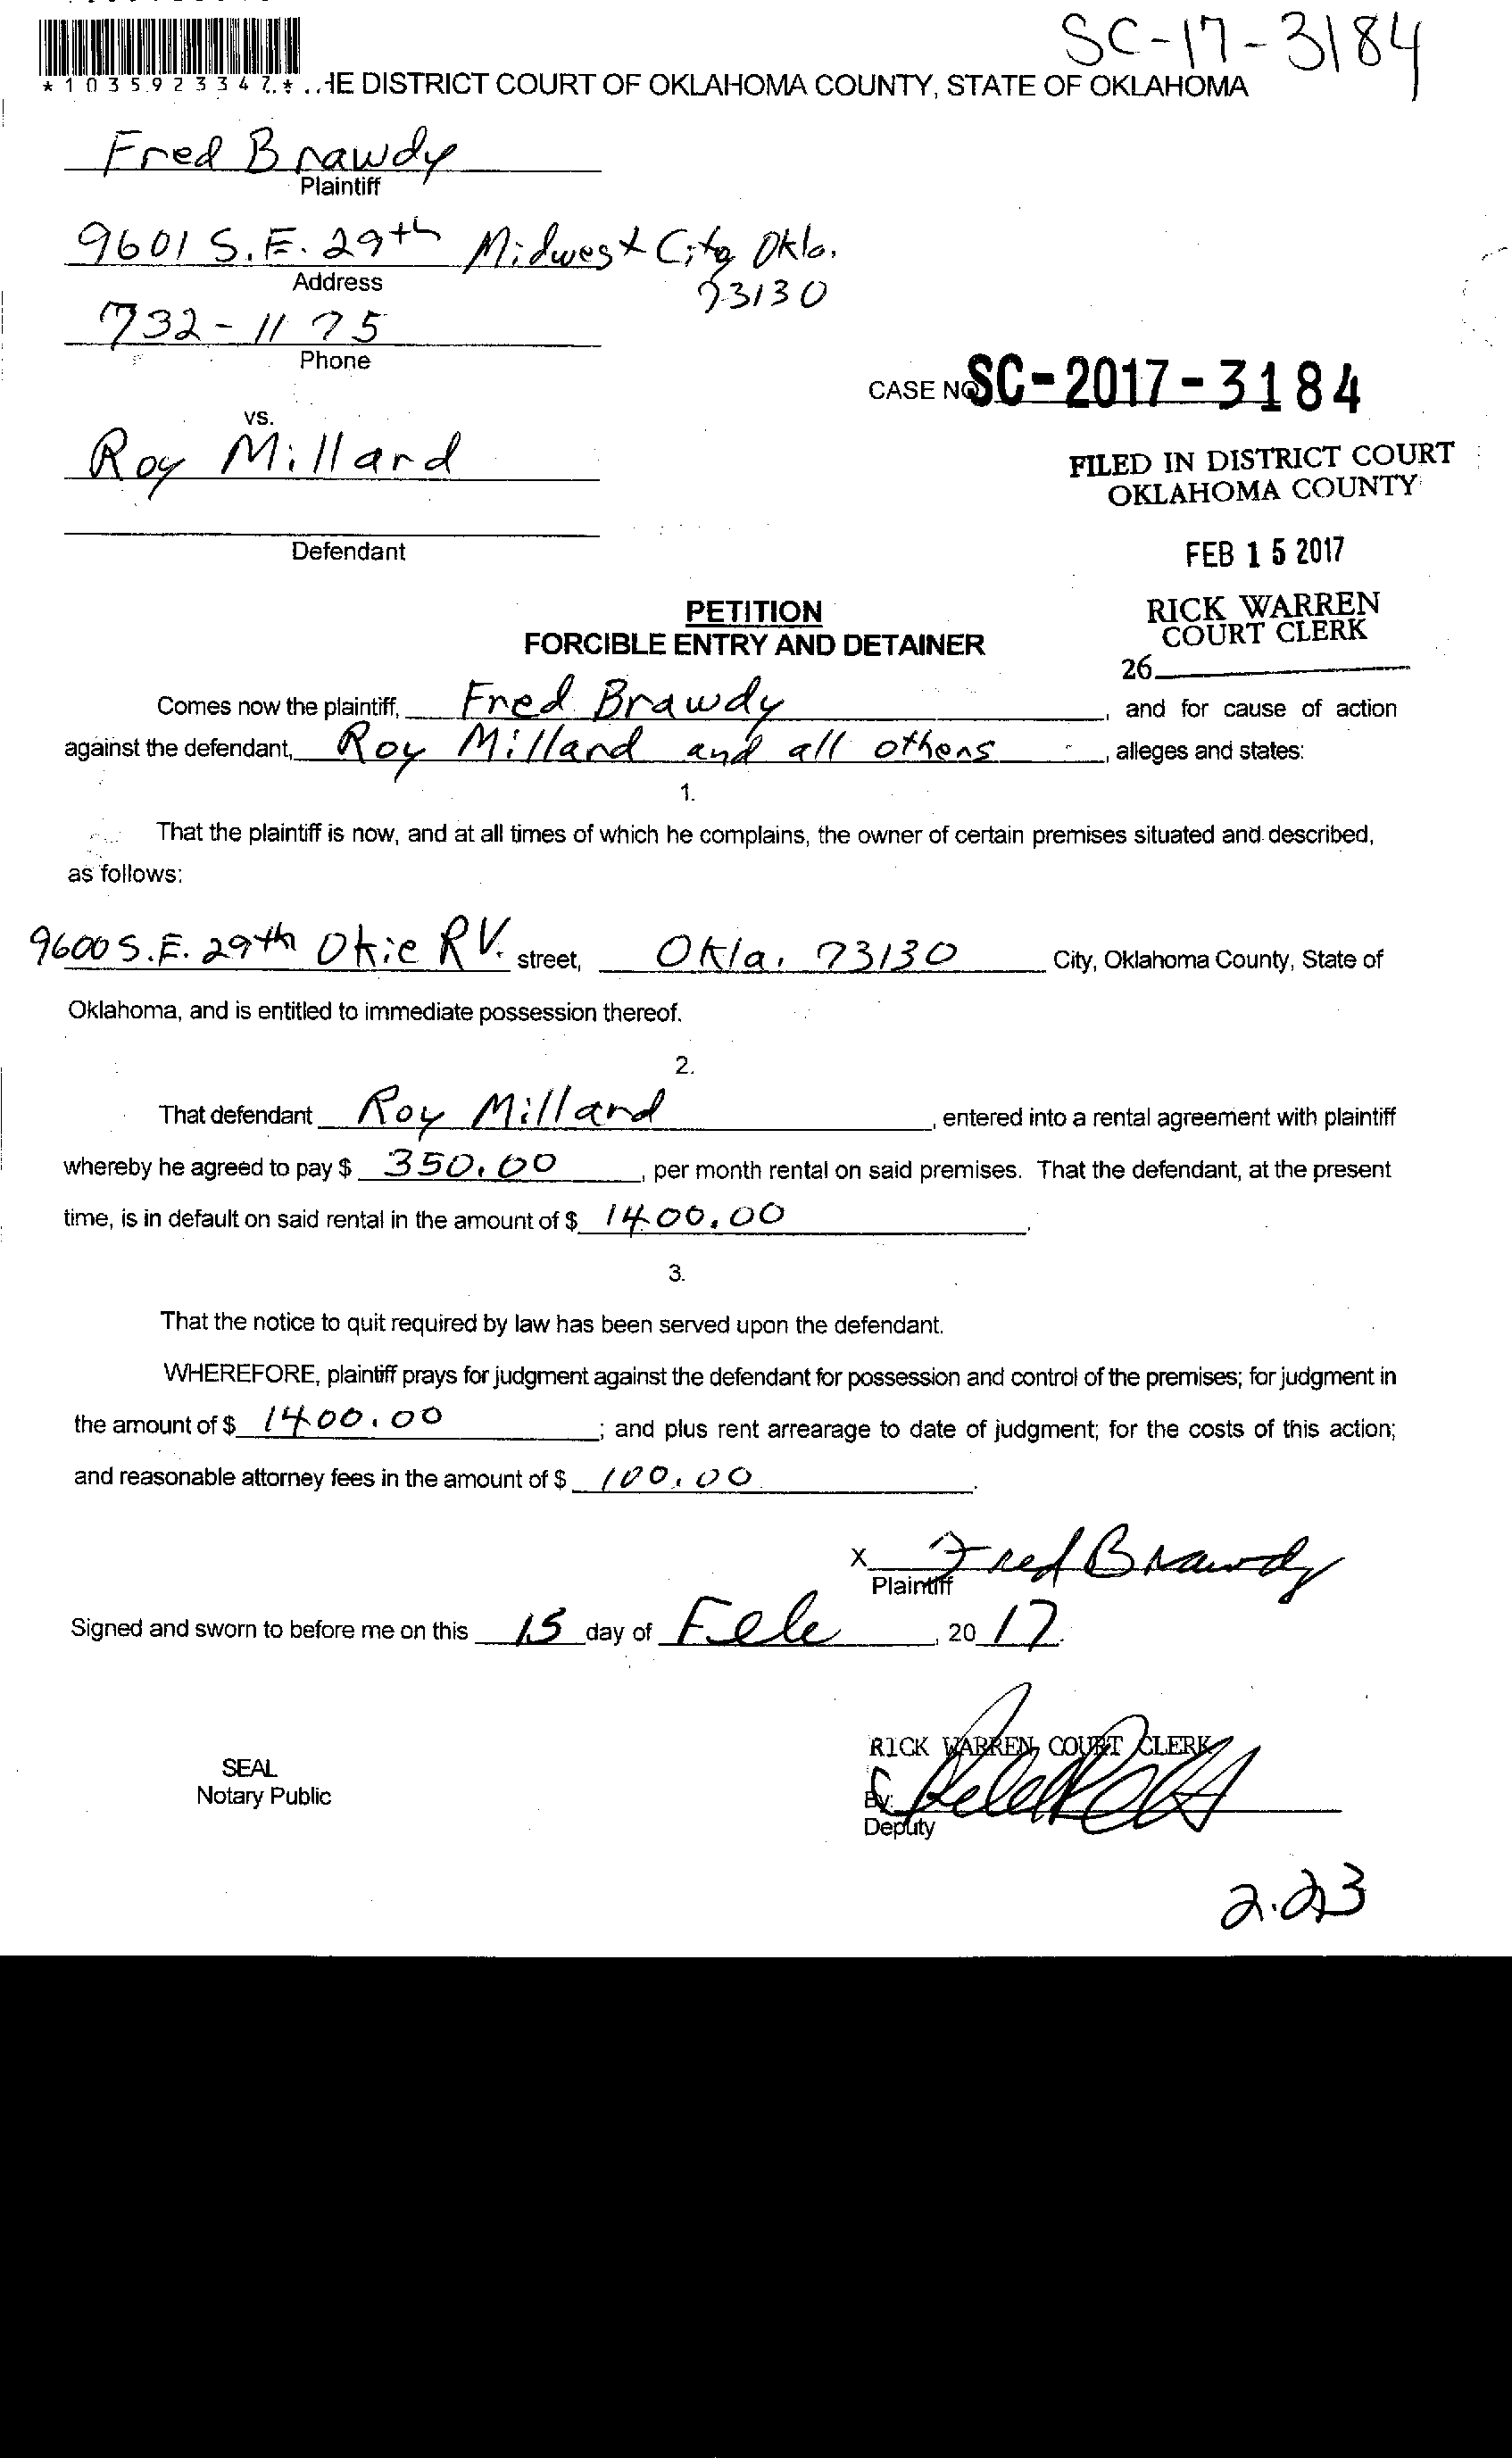 SC-17-3184
*1035923347* ..HE DISTRICT COURT OF OKLAHOMA COUNTY, STATE OF OKLAHOMA
Fred Brawdy
Plaintiff
9601 S.E. 29th Midwest City Okla.
Address
73130
732-1175
Phone
CASE NO. SC-2017-3184
vs.
Roy Millard
FILED IN DISTRICT COURT
OKLAHOMA COUNTY
Defendant
FEB 15 2017
PETITION
RICK WARREN
COURT CLERK
FORCIBLE ENTRY AND DETAINER
26
Comes now the plaintiff, Fred Brawdy, and for cause of action
against the defendant, Roy Millard and all others, alleges and states:
1.
That the plaintiff is now, and at all times of which he complains, the owner of certain premises situated and described,
as follows:
9600 S.E. 29th Okie RV. street, Okla. 73130 City, Oklahoma County, State of
Oklahoma, and is entitled to immediate possession thereof.
2.
That defendant Roy Millard, entered into a rental agreement with plaintiff
whereby he agreed to pay $ 350.00, per month rental on said premises. That the defendant, at the present
time, is in default on said rental in the amount of $ 1400.00.
3.
That the notice to quit required by law has been served upon the defendant.
WHEREFORE, plaintiff prays for judgment against the defendant for possession and control of the premises; for judgment in
the amount of $ 1400.00; and plus rent arrearage to date of judgment; for the costs of this action;
and reasonable attorney fees in the amount of $ 100.00.
x Fred Brawdy
Plaintiff
Signed and sworn to before me on this 15 day of Feb, 20 17.
RICK WARREN, COURT CLERK
SEAL
Notary Public
By:
Deputy
2.23